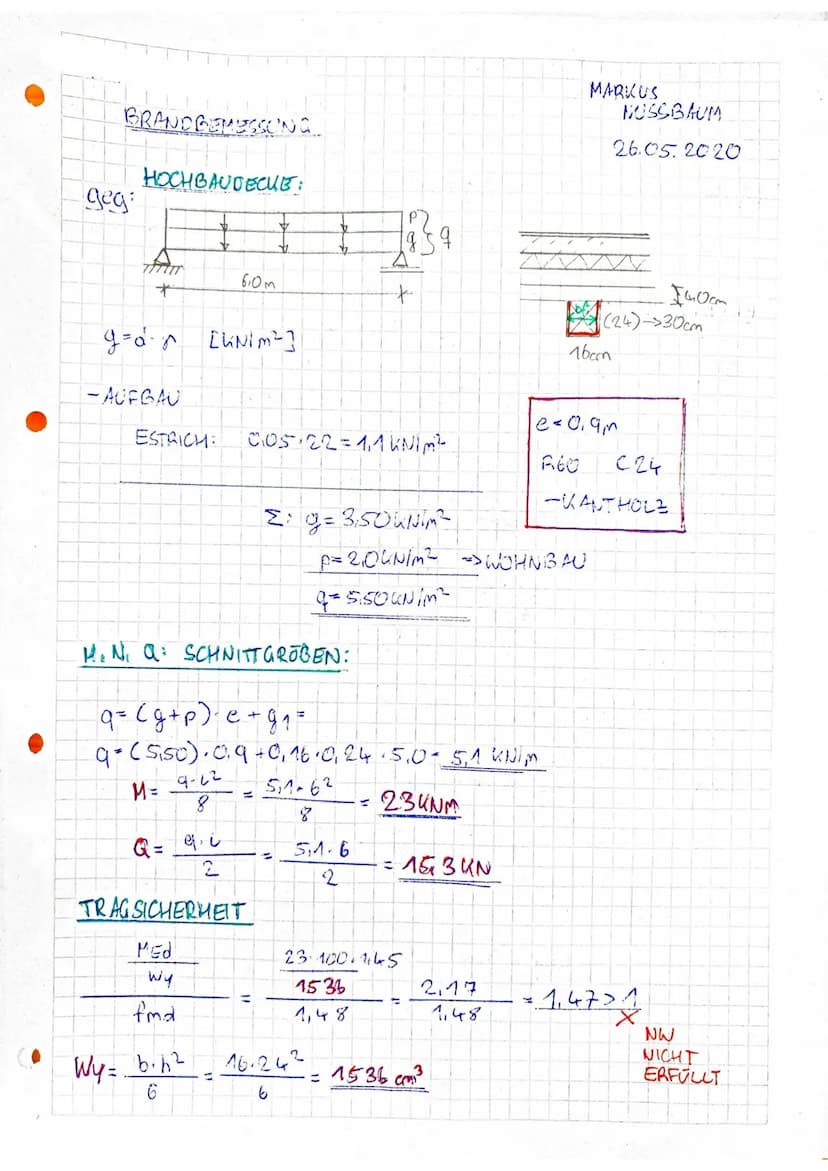 MARKUS
NUSSBAUM
26.05.2020
BRANDBEMESSUNG
HOCHBAUDECKE:
geg:
p
g } q
6,0m
40cm
(24)->30cm
16cm
g=d·ɣ [kN/m²]
-AUFBAU
ESTRICH: 0,05·22=1,1kN/m²
e=0,9m
R60 C24
-KANTHOLZ
Σ: g=3,50kN/m²
p=2,0kN/m² => WOHNBAU
q=5,50kN/m²
M, N, Q: SCHNITTGRÖßEN:
q=(g+p)·e+g1=
q=(5,50)·0,9+0,16·0,24·5,0=5,1 kN/m
M= q·l²/8 = 5,1·6²/8 = 23kNm
Q= q·l/2 = 5,1·6/2 = 15,3kN
TRAGSICHERHEIT
(MEd/Wy)/fmd = (23·100·1,45/1536)/1,48 = 2,17/1,48 = 1,47>1
X
NW
NICHT
ERFÜLLT
Wy= b·h²/6 = 16·24²/6 = 1536 cm³